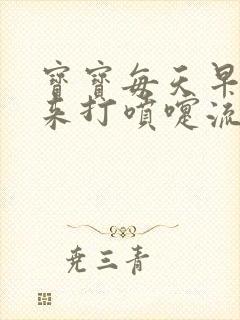 寶寶每天早
來打噴嚏流
堯三青